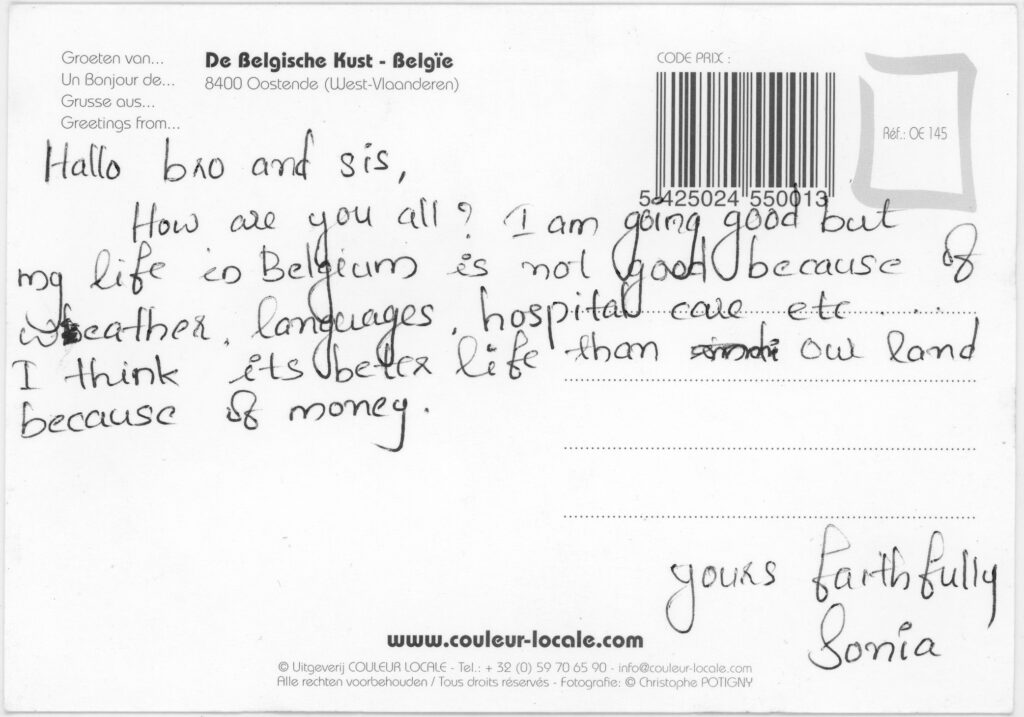 Groeten van...
Un Bonjour de...
Grusse aus...
Greetings from...
De Belgische Kust - Belgïe
8400 Oostende (West-Vlaanderen)
CODE PRIX :
5 425024 550013
Réf.: OE 145
Hallo bro and sis,
How are you all? I am going good but
my life in Belgium is not good because of
weather, languages, hospital care etc ....
I think its beter life than our land
because of money.
yours faithfully
Sonia
www.couleur-locale.com
© Uitgeverij COULEUR LOCALE - Tel.: + 32 (0) 59 70 65 90 - info@couleur-locale.com
Alle rechten voorbehouden / Tous droits réservés - Fotografie: © Christophe POTIGNY